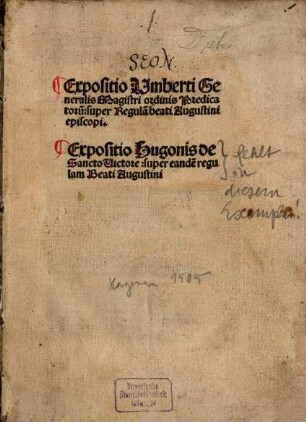 SEON.
¶Expositio Umberti Ge
neralis Magistri ordinis Predica
torū: super Regulā beati Augustini
episcopi.
¶Expositio Hugonis de
Sancto Uictore: super eandē regu
lam Beati Augustini
fehlt
in
diesem
Exemplar!
Hagenau 1505
Bayerische
Staatsbibliothek
München